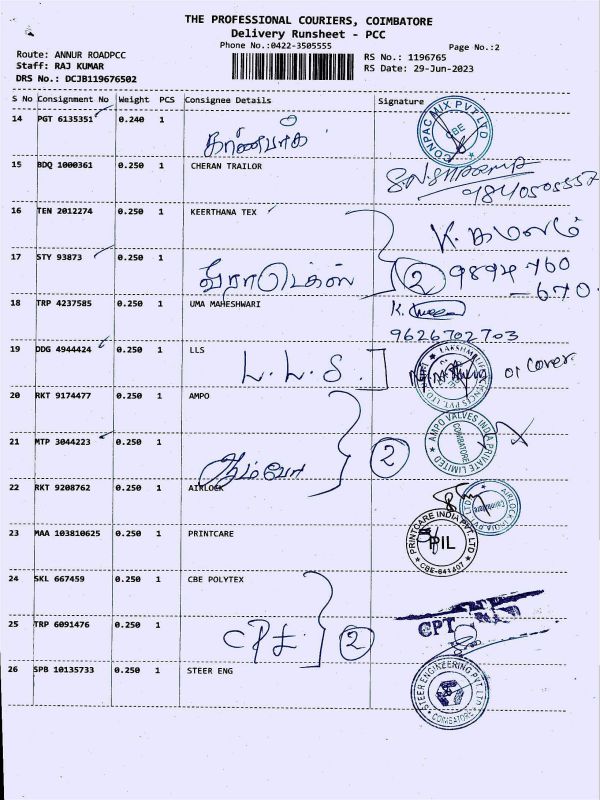 THE PROFESSIONAL COURIERS, COIMBATORE
Delivery Runsheet - PCC
Phone No.:0422-3505555
Page No.:2
Route: ANNUR ROADPCC
Staff: RAJ KUMAR
DRS No.: DCJB119676502
RS No.: 1196765
RS Date: 29-Jun-2023
S No Consignment No Weight PCS Consignee Details Signature
14 PGT 6135351 0.240 1
CONPAC MIX PVT LTD
CBE
15 BDQ 1000361 0.250 1 CHERAN TRAILOR
9840505557
16 TEN 2012274 0.250 1 KEERTHANA TEX
K. கமலம்
17 STY 93873 0.250 1
2 9894 760
-670.
18 TRP 4237585 0.250 1 UMA MAHESHWARI
9626702703
19 DDG 4944424 0.250 1 LLS
L. L. S. or cover
20 RKT 9174477 0.250 1 AMPO
AMPO VALVES INDIA PRIVATE LIMITED
COIMBATORE
21 MTP 3044223 0.250 1
2
22 RKT 9208762 0.250 1 AIRLOCK
23 MAA 103810625 0.250 1 PRINTCARE
PRINTCARE INDIA PVT. LTD
PIL
CBE-641407
24 SKL 667459 0.250 1 CBE POLYTEX
25 TRP 6091476 0.250 1
2
CPT
26 SPB 10135733 0.250 1 STEER ENG
STEER ENGINEERING PVT. LTD
COIMBATORE